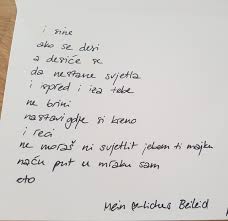 i sine
ako se desi
a desiće se
da nestane svjetla
i ispred i iza tebe
ne brini
nastavi gdje si kreno
i reci
ne moraš ni svjetlit jebem ti majku
naću put u mraku sam
eto
Mein